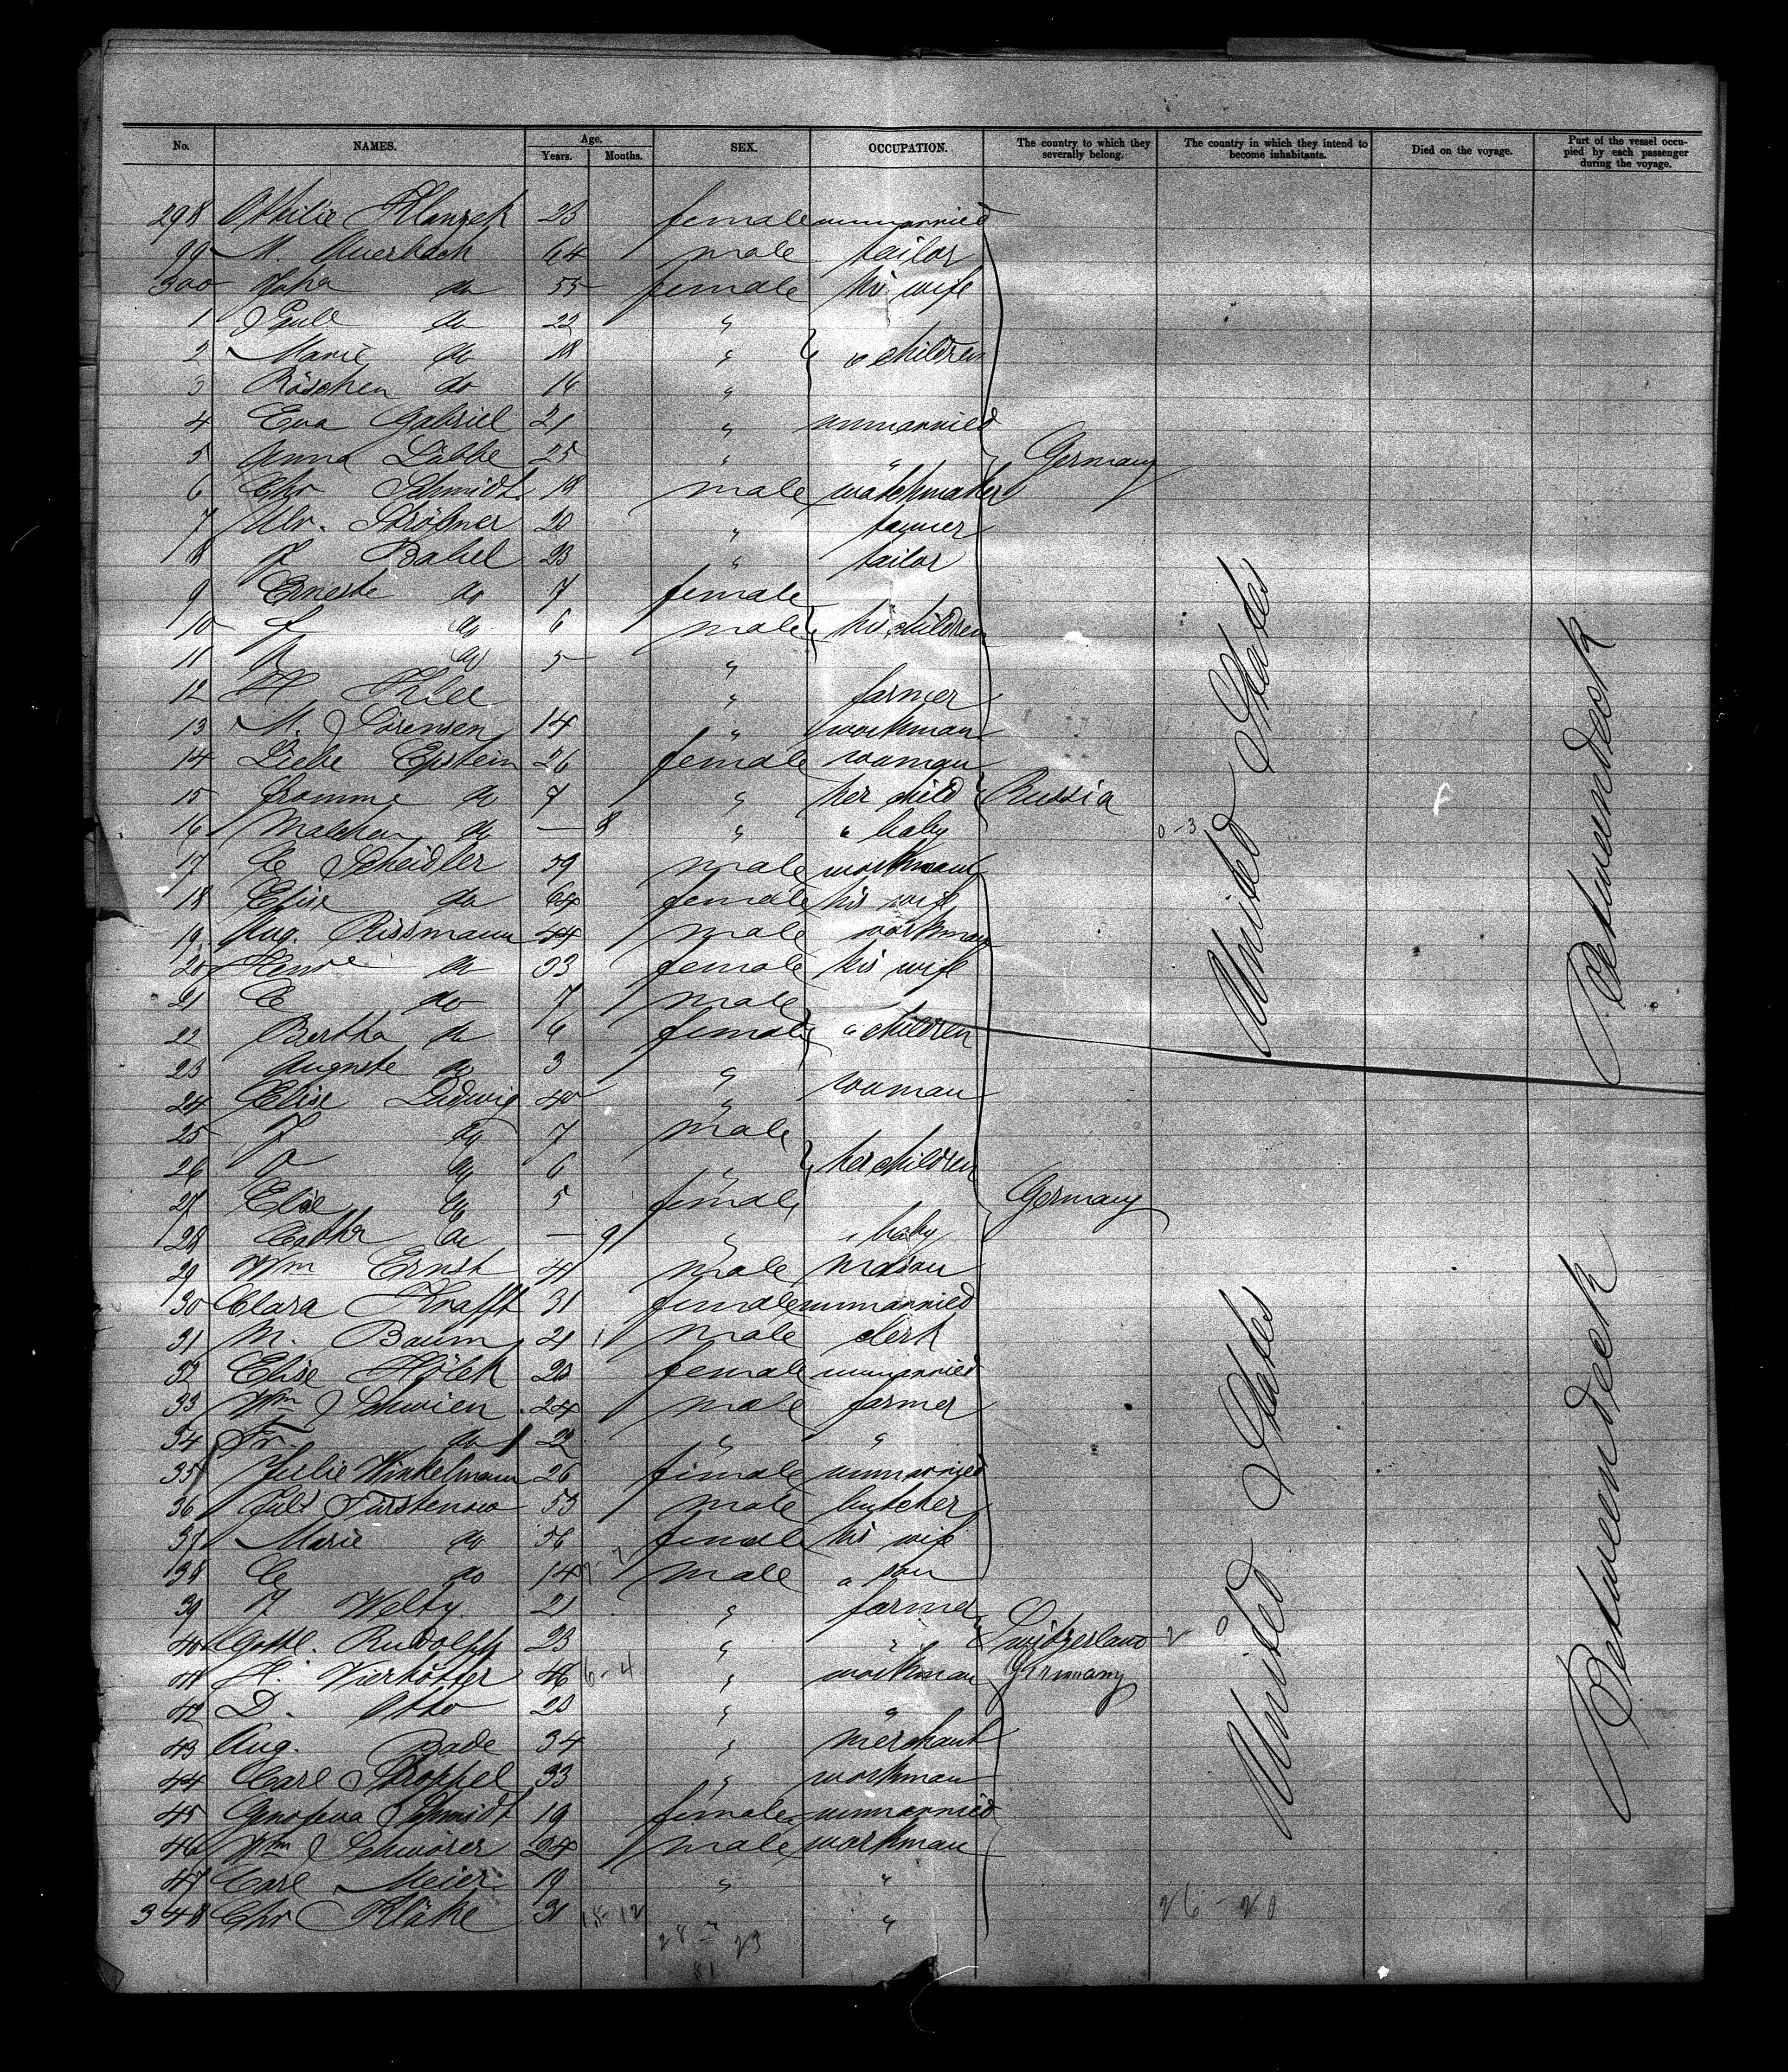 No. NAMES. Age. Years. Months. SEX. OCCUPATION. The country to which they severally belong. The country in which they intend to become inhabitants. Died on the voyage. Part of the vessel occupied by each passenger during the voyage.
298 23 female unmarried
99 M. Auerbach 64 male tailor
300 do 55 female his wife
1 do 22 "
2 Marie do 18 " children
3 Röschen do 16 "
4 Eva Gabriel 21 " unmarried
5 Anna Lübke 25 " " Germany
6 Chr Schmidt 18 male watchmaker
7 20 " tanner
8 F Babel 23 " tailor
9 Erneste do 7 female
10 do 6 male his children
11 do 5 "
12 H Klee " farmer
13 M. Sörensen 14 " workman
14 Liebe Epstein 26 female woman
15 Fromme do 7 " her child Russia
16 Malchen do — 8 " " baby 0-3
17 C Scheidler 59 male workman
18 Elise do 64 female his wife
19 Aug. Rissmann 44 male workman
20 do 33 female his wife
21 C do 7 male
22 Bertha do 6 female " children
23 Auguste do 3 "
24 Elise Ludwig 40 " woman
25 F do 7 male
26 do 6 " her children
27 Elise do 5 female Germany
28 Cathr do — 9 " " baby
29 Wm Ernst 41 male mason
30 Clara Krafft 31 female unmarried
31 M. Baum 21 male clerk
32 Elise Hölck 20 female unmarried
33 Wm Schwien 24 male farmer
34 Fr. do 22 " "
35 Julie Winkelmann 26 female unmarried
36 Fürstenow 53 male butcher
37 Marie do 56 female his wife
38 C do 14 male " son
39 Welty 21 " farmer
40 Gottl. Rudolph 23 " " Switzerland 2 0
41 H. Vierkötter 46 6-4 " workman Germany
42 D. Otto 20 " "
43 Aug. Bade 34 " merchant
44 Carl Stroppel 33 " workman
45 Genofeva Schmidt 19 female unmarried
46 Wm Schwörer 24 male workman
47 Carl Meier 19 " "
348 Chr Kläke 31 18-12 " 26-20
28 - 23
81
United States
United States
Betweendeck
Betweendeck